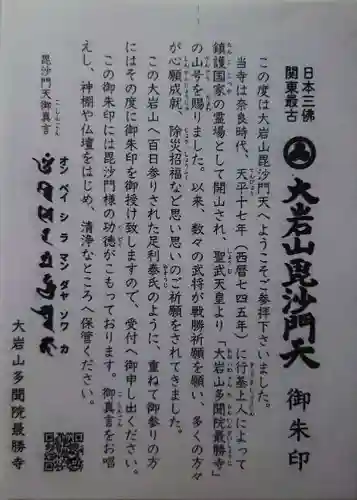 日本三佛
関東最古
大岩山毘沙門天 御朱印
この度は大岩山毘沙門天へようこそご参拝下さいました。
当寺は奈良時代、天平十七年（西暦七四五年）に行基上人によって
鎮護国家の霊場として開山され、聖武天皇より「大岩山多聞院最勝寺」
の山号を賜りました。以来、数々の武将が戦勝祈願を願い、多くの方々
が心願成就、除災招福など思い思いのご祈願をされてきました。
この大岩山へ百日参りされた足利泰氏のように、重ねて御参りの方
にはその度に御朱印を御授け致しますので、受付へ御申し出ください。
この御朱印には毘沙門様の功徳がこもっております。御真言をお唱
えし、神棚や仏壇をはじめ、清浄なところへ保管ください。
毘沙門天御真言
オン ベイ シラ マンダヤ ソワカ
大岩山多聞院最勝寺